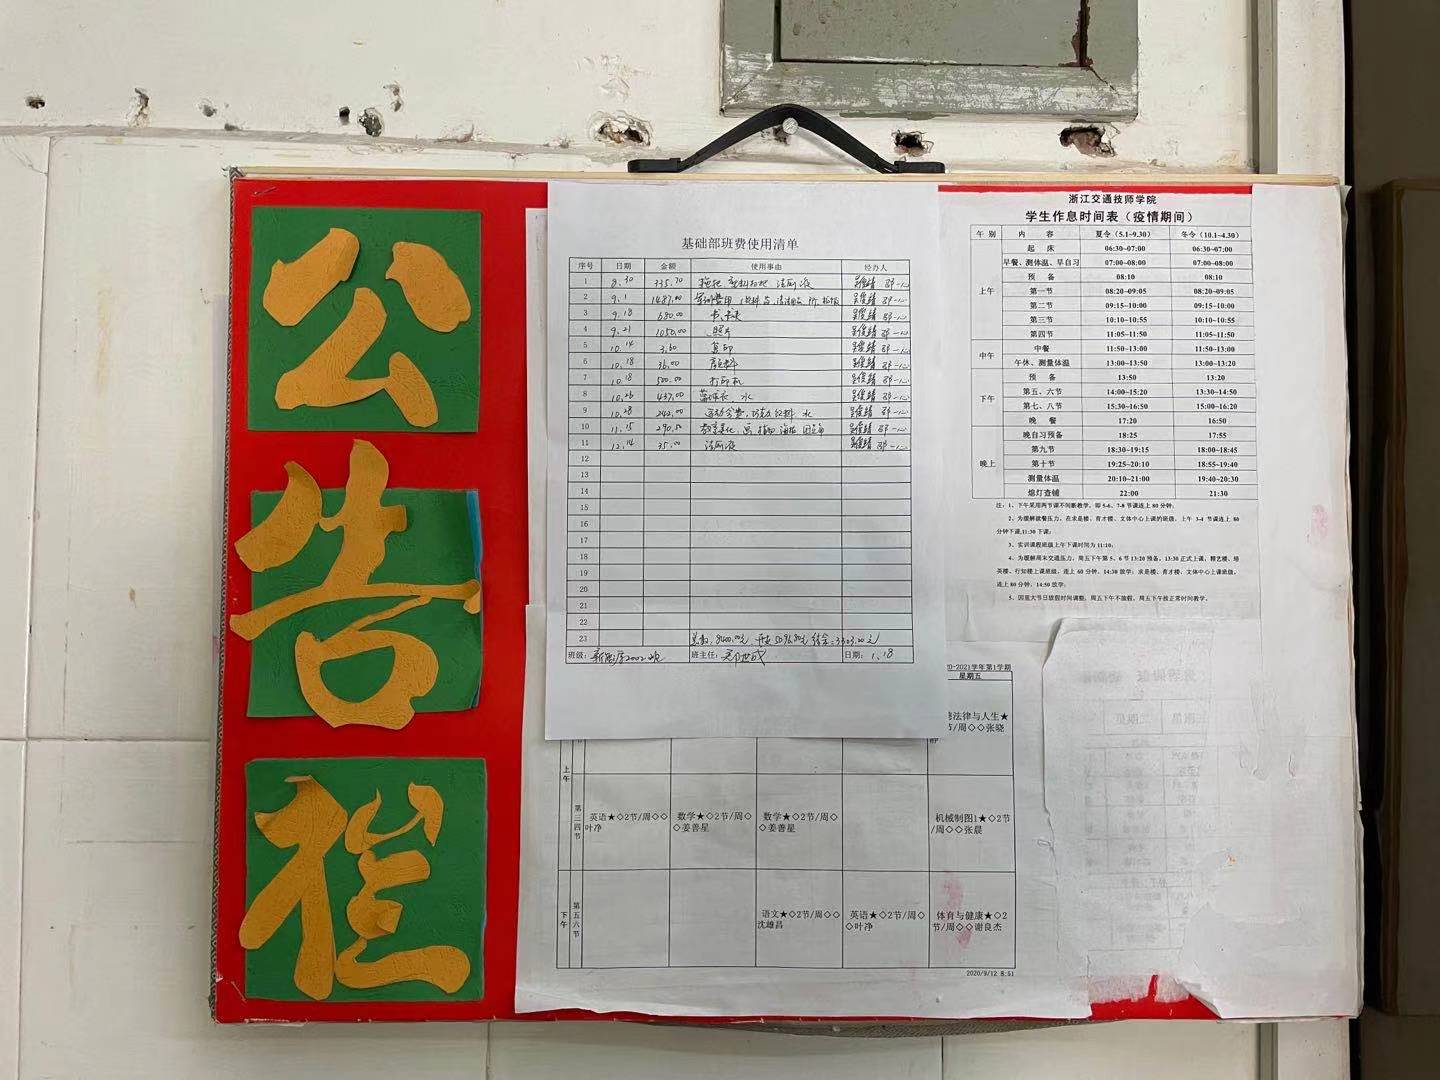 公
告
栏
基础部班费使用清单
序号 日期 金额 使用事由 经办人
1 8.30 335.70 拖把 塑料扫把 洁厕液
2 9.1 1487.00
3 9.18 680.00 书、书夹
4 9.21 1050.00 照片
5 10.14 3.60 复印
6 10.18 36.00
7 10.18 500.00 打印机
8 10.26 437.00 篮球衣 水
9 10.28 242.00 运动会费,巧克力 饮料 水
10 11.15 290.50
11 12.14 35.00 洁厕液
12
13
14
15
16
17
18
19
20
21
22
23
班级: 班主任: 日期: 1.18
浙江交通技师学院
学生作息时间表(疫情期间)
午 别 内 容 夏令(5.1~9.30) 冬令(10.1~4.30)
上午 起 床 06:30~07:00 06:30~07:00
早餐、测体温、早自习 07:00~08:00 07:00~08:00
预 备 08:10 08:10
第一节 08:20~09:05 08:20~09:05
第二节 09:15~10:00 09:15~10:00
第三节 10:10~10:55 10:10~10:55
第四节 11:05~11:50 11:05~11:50
中午 中餐 11:50~13:00 11:50~13:00
午休、测量体温 13:00~13:50 13:00~13:20
下午 预 备 13:50 13:20
第五、六节 14:00~15:20 13:30~14:50
第七、八节 15:30~16:50 15:00~16:20
晚 餐 17:20 16:50
晚上 晚自习预备 18:25 17:55
第九节 18:30~19:15 18:00~18:45
第十节 19:25~20:10 18:55~19:40
测量体温 20:10~21:00 19:40~20:30
熄灯查铺 22:00 21:30
注:1、下午采用两节课不间断教学,即 5-6、7-8 节课连上 80 分钟;
2、为缓解就餐压力,在求是楼、育才楼、文体中心上课的班级,上午 3-4 节课连上 80
分钟下课,11:30 下课;
3、实训课程班级上午下课时间为 11:10;
4、为缓解周末交通压力,周五下午第 5、6 节 13:20 预备,13:30 正式上课,精艺楼、培
英楼、行知楼上课班级,连上 60 分钟,14:30 放学;求是楼、育才楼、文体中心上课班级,
连上 80 分钟,14:50 放学;
5、因重大节日放假时间调整,周五下午不放假,周五下午按正常时间教学。
20-2021学年第1学期
星期五
法律与人生★
节/周◇◇张晓
上午 第三四节 英语★◇2节/周◇◇叶净 数学★◇2节/周◇◇姜善星 数学★◇2节/周◇◇姜善星 机械制图1★◇2节/周◇◇张晨
下午 第五六节 语文★◇2节/周◇◇沈雄昌 英语★◇2节/周◇◇叶净 体育与健康★◇2节/周◇◇谢良杰
2020/9/12 8:51